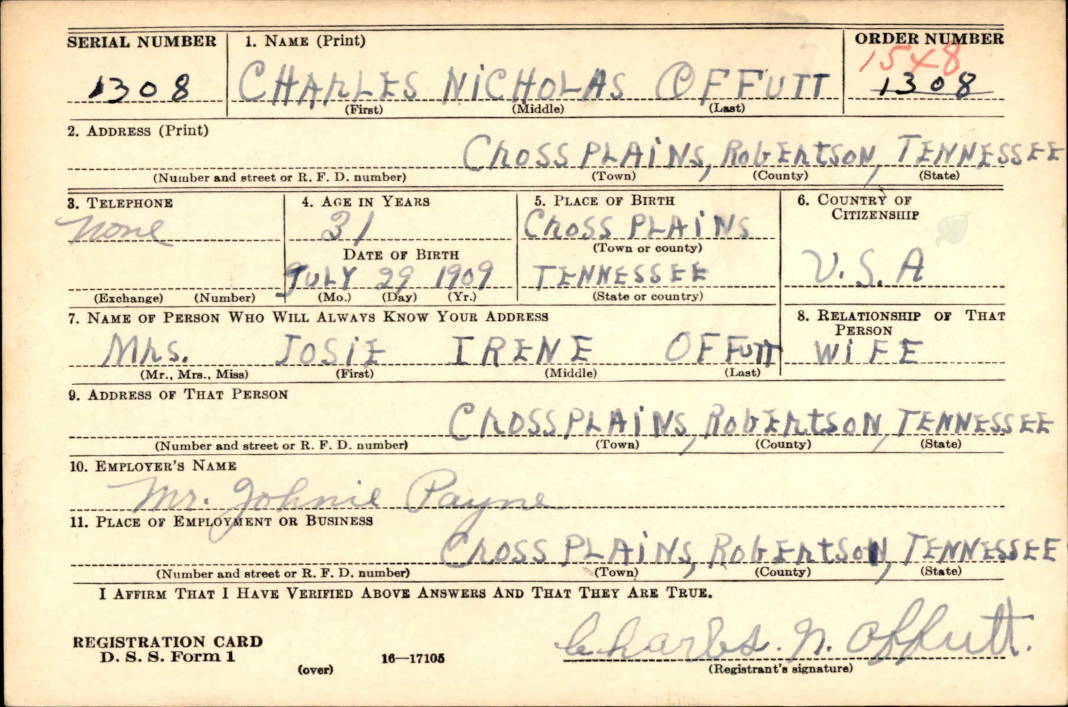 SERIAL NUMBER 1. NAME (Print) ORDER NUMBER
1548
1308 CHARLES NICHOLAS OFFUTT 1308
(First) (Middle) (Last)
2. ADDRESS (Print)
CROSS PLAINS, ROBERTSON, TENNESSEE
(Number and street or R. F. D. number) (Town) (County) (State)
3. TELEPHONE 4. AGE IN YEARS 5. PLACE OF BIRTH 6. COUNTRY OF
CITIZENSHIP
None 31 CROSS PLAINS
(Town or county)
DATE OF BIRTH
JULY 29 1909 TENNESSEE U.S.A
(Exchange) (Number) (Mo.) (Day) (Yr.) (State or country)
7. NAME OF PERSON WHO WILL ALWAYS KNOW YOUR ADDRESS 8. RELATIONSHIP OF THAT
PERSON
MRS. JOSIE IRENE OFFUTT WIFE
(Mr., Mrs., Miss) (First) (Middle) (Last)
9. ADDRESS OF THAT PERSON
CROSS PLAINS, ROBERTSON, TENNESSEE
(Number and street or R. F. D. number) (Town) (County) (State)
10. EMPLOYER'S NAME
Mr. Johnie Payne
11. PLACE OF EMPLOYMENT OR BUSINESS
CROSS PLAINS, ROBERTSON, TENNESSEE
(Number and street or R. F. D. number) (Town) (County) (State)
I AFFIRM THAT I HAVE VERIFIED ABOVE ANSWERS AND THAT THEY ARE TRUE.
REGISTRATION CARD
D. S. S. Form 1 (over) 16—17105 Charles. N. Offutt.
(Registrant's signature)